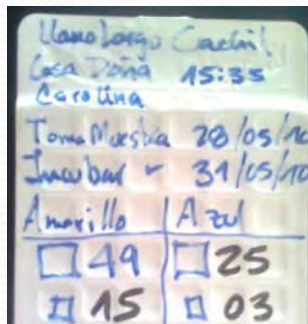 Llano Largo Cachi!
Casa Doña 15:35
Carolina
Toma Muestra 28/05/10
Incubar 31/05/10
Amarillo Azul
49 25
15 03